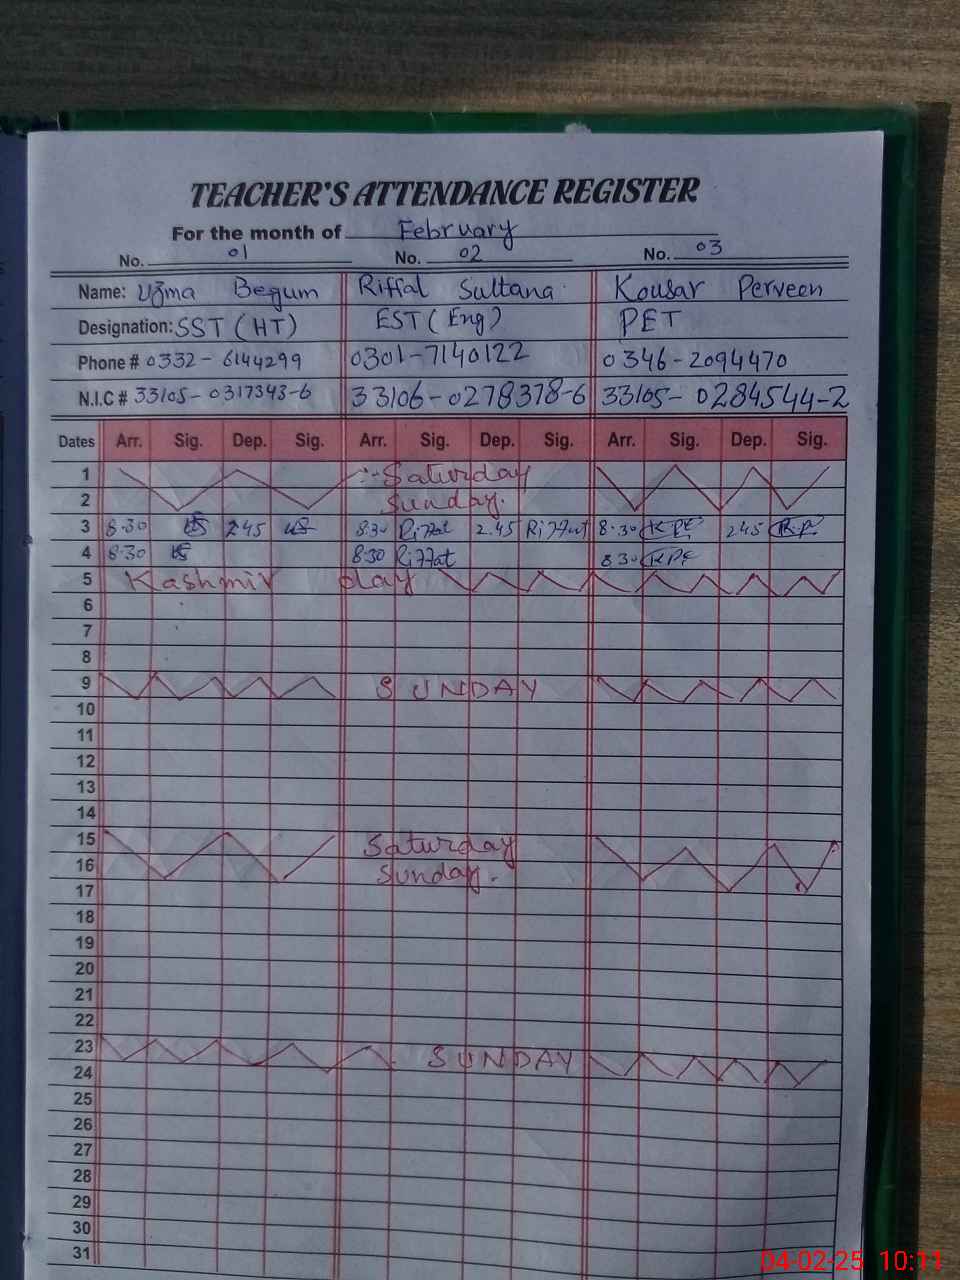 TEACHER'S ATTENDANCE REGISTER
For the month of February
No. 01 No. 02 No. 03
Name: Uzma Begum Riffat Sultana Kousar Perveen
Designation: SST (HT) EST (Eng) PET
Phone # 0332-6144299 0301-7140122 0346-2094470
N.I.C # 33105-0317343-6 33106-0278378-6 33105-0284544-2
Dates Arr. Sig. Dep. Sig. Arr. Sig. Dep. Sig. Arr. Sig. Dep. Sig.
1 Saturday
2 Sunday.
3 8.30 2.45 8.30 Riffat 2.45 Riffat 8.30 2.45
4 8.30 8.30 Riffat 8.30
5 Kashmir day
6
7
8
9 SUNDAY
10
11
12
13
14
15 Saturday
16 Sunday.
17
18
19
20
21
22
23 SUNDAY
24
25
26
27
28
29
30
31
04-02-25 10:11